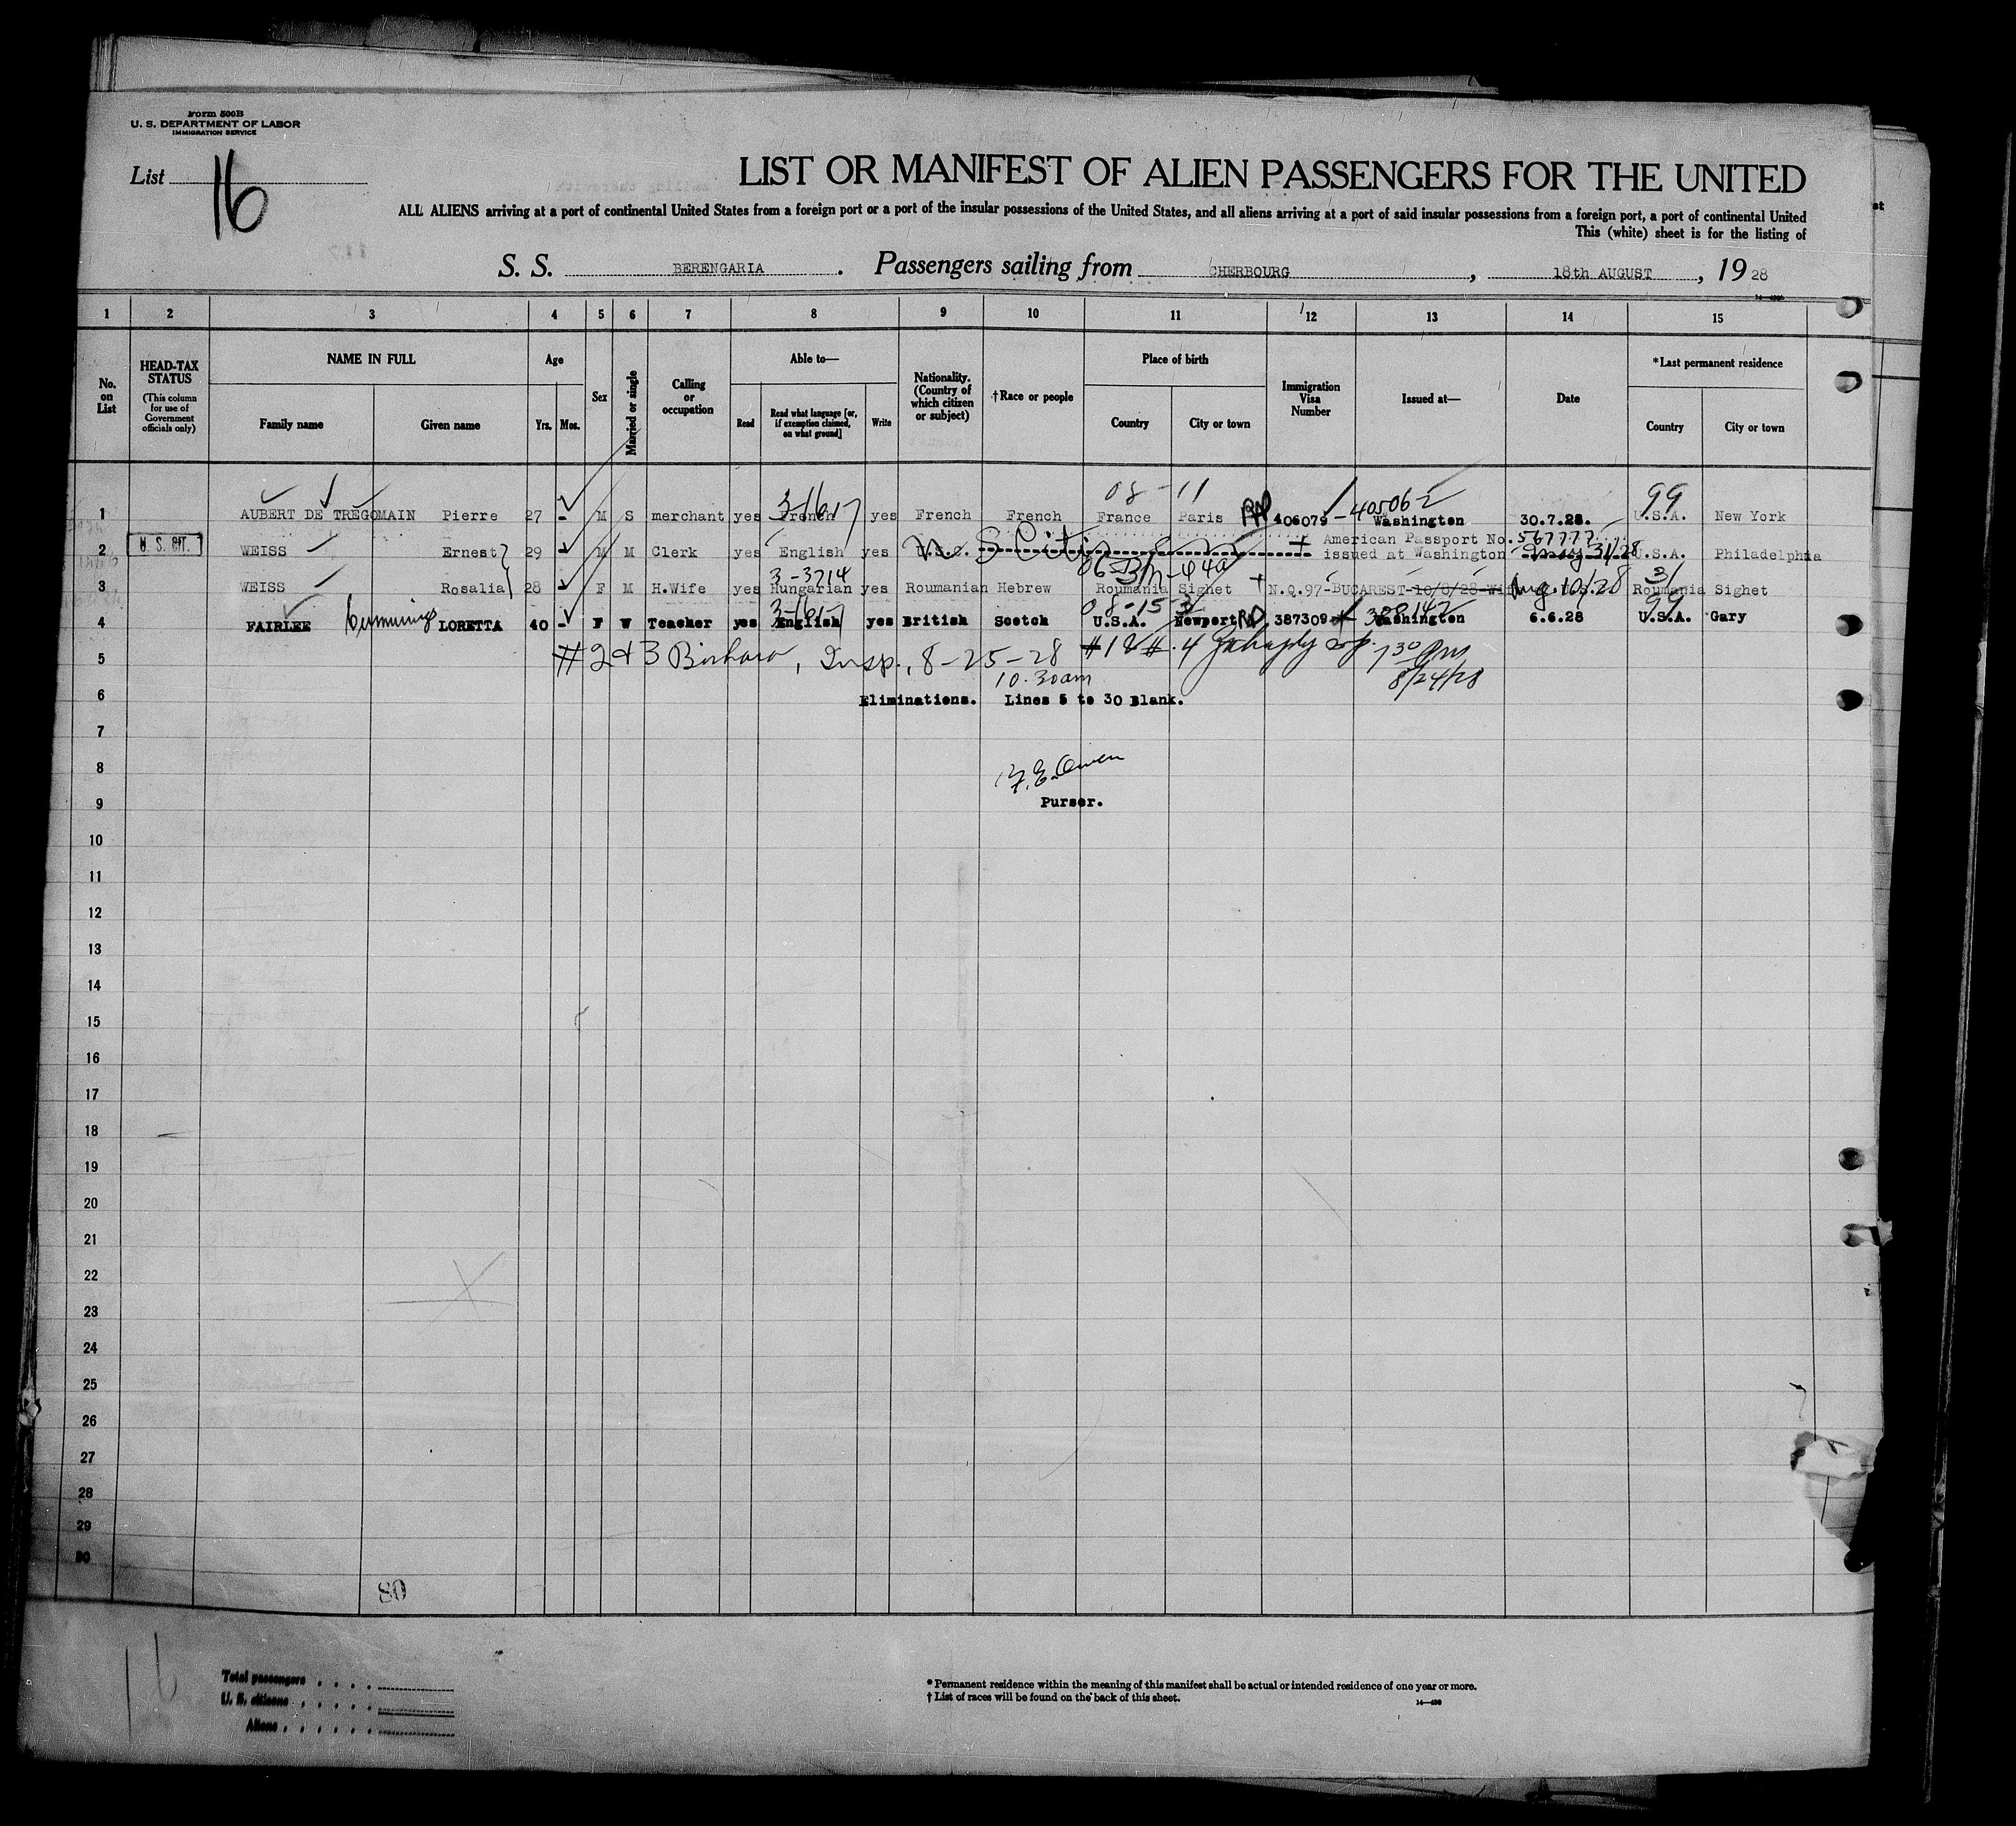 Form 500B
U. S. DEPARTMENT OF LABOR
IMMIGRATION SERVICE
List 16
LIST OR MANIFEST OF ALIEN PASSENGERS FOR THE UNITED
ALL ALIENS arriving at a port of continental United States from a foreign port or a port of the insular possessions of the United States, and all aliens arriving at a port of said insular possessions from a foreign port, a port of continental United
This (white) sheet is for the listing of
S. S. BERENGARIA. Passengers sailing from CHERBOURG, 18th AUGUST, 19 28
1 2 3 4 5 6 7 8 9 10 11 12 13 14 15
No. on List
HEAD-TAX STATUS (This column for use of Government officials only)
NAME IN FULL
Family name Given name
Age
Yrs. Mos.
Sex
Married or single
Calling or occupation
Able to—
Read Read what language [or, if exemption claimed, on what ground] Write
Nationality. (Country of which citizen or subject)
†Race or people
Place of birth
Country City or town
Immigration Visa Number
Issued at—
Date
*Last permanent residence
Country City or town
3-1617 08-11 405062 99
1 AUBERT DE TREGOMAIN Pierre 27 - M S merchant yes French yes French French France Paris 406079 - Washington 30.7.28. U.S.A. New York
American Passport No. 567777
2 WEISS Ernest 29 - M M Clerk yes English yes U.S.C. issued at Washington May 31/28 U.S.A. Philadelphia
3-3714 31
3 WEISS Rosalia 28 F M H.Wife yes Hungarian yes Roumanian Hebrew Roumania Sighet N.Q.97-BUCAREST-10/8/28- Aug. 10/28 Roumania Sighet
3-1617 08-15-3 99
4 FAIRLEE Cumming LORETTA 40 - F W Teacher yes English yes British Scotch U.S.A. Newport 387309 Washington 6.6.28 U.S.A. Gary
5 #2 & 3 Insp., 8-25-28 #1 & #4 7 30 PM
10.30am 8/24/28
6 Eliminations. Lines 5 to 30 Blank.
7
8 F.E. Owen
9 Purser.
10
11
12
13
14
15
16
17
18
19
20
21
22
23
24
25
26
27
28
29
30
80
16
Total passengers . . . .
U. S. citizens . . . . .
Aliens . . . . . .
* Permanent residence within the meaning of this manifest shall be actual or intended residence of one year or more.
† List of races will be found on the back of this sheet.